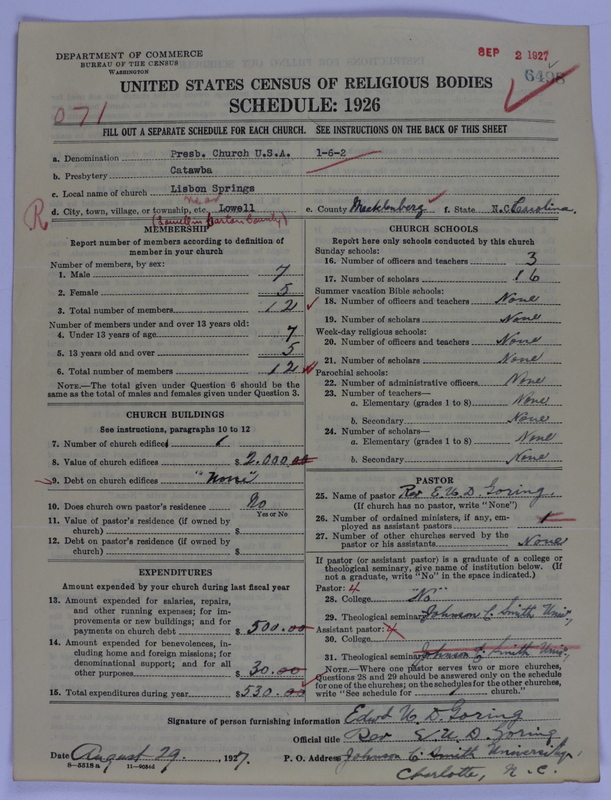 DEPARTMENT OF COMMERCE
BUREAU OF THE CENSUS
WASHINGTON
SEP 2 1927
6498
UNITED STATES CENSUS OF RELIGIOUS BODIES
SCHEDULE: 1926
071
FILL OUT A SEPARATE SCHEDULE FOR EACH CHURCH. SEE INSTRUCTIONS ON THE BACK OF THIS SHEET
a. Denomination Presb. Church U.S.A. 1-6-2
b. Presbytery Catawba
c. Local name of church Lisbon Springs
d. City, town, village, or township, etc. near Lowell e. County Mecklenburg f. State N.C Carolina.
R
MEMBERSHIP
Report number of members according to definition of
member in your church
Number of members, by sex:
1. Male 7
2. Female 5
3. Total number of members 12
Number of members under and over 13 years old:
4. Under 13 years of age 7
5. 13 years old and over 5
6. Total number of members 12
NOTE.—The total given under Question 6 should be
same as the total of males and females given under Question 3.
CHURCH BUILDINGS
See instructions, paragraphs 10 to 12
7. Number of church edifices 1
8. Value of church edifices $ 2.000.00
9. Debt on church edifices "None"
10. Does church own pastor's residence No
Yes or No
11. Value of pastor's residence (if owned by
church) $
12. Debt on pastor's residence (if owned by
church) $
EXPENDITURES
Amount expended by your church during last fiscal year
13. Amount expended for salaries, repairs,
and other running expenses; for im-
provements or new buildings; and for
payments on church debt $ 500.00
14. Amount expended for benevolences, in-
cluding home and foreign missions; for
denominational support; and for all
other purposes 30.00
15. Total expenditures during year $ 530.00
CHURCH SCHOOLS
Report here only schools conducted by this church
Sunday schools:
16. Number of officers and teachers 3
17. Number of scholars 16
Summer vacation Bible schools:
18. Number of officers and teachers None
19. Number of scholars None
Week-day religious schools:
20. Number of officers and teachers None
21. Number of scholars None
Parochial schools:
22. Number of administrative officers None
23. Number of teachers—
a. Elementary (grades 1 to 8) None
b. Secondary None
24. Number of scholars—
a. Elementary (grades 1 to 8) None
b. Secondary None
PASTOR
25. Name of pastor Rev E. U. D. Goring.
(If church has no pastor, write "None")
26. Number of ordained ministers, if any, em-
ployed as assistant pastors 1
27. Number of other churches served by the
pastor or his assistants None
If pastor (or assistant pastor) is a graduate of a college or
theological seminary, give name of institution below. (If
not a graduate, write "No" in the space indicated.)
Pastor: 4
28. College "No"
29. Theological seminary Johnson C. Smith Univ.,
Assistant pastor: 4
30. College
31. Theological seminary Johnson C. Smith Univ,
NOTE.—Where one pastor serves two or more churches,
Questions 28 and 29 should be answered only on the schedule
for one of the churches; on the schedules for the other churches,
write "See schedule for church."
Signature of person furnishing information Edwd U. D. Goring
Official title Rev E. U. D. Goring
Date August 29, 1927. P. O. Address Johnson C. Smith University,
8—5318a 11—9054
Charlotte, N. C.